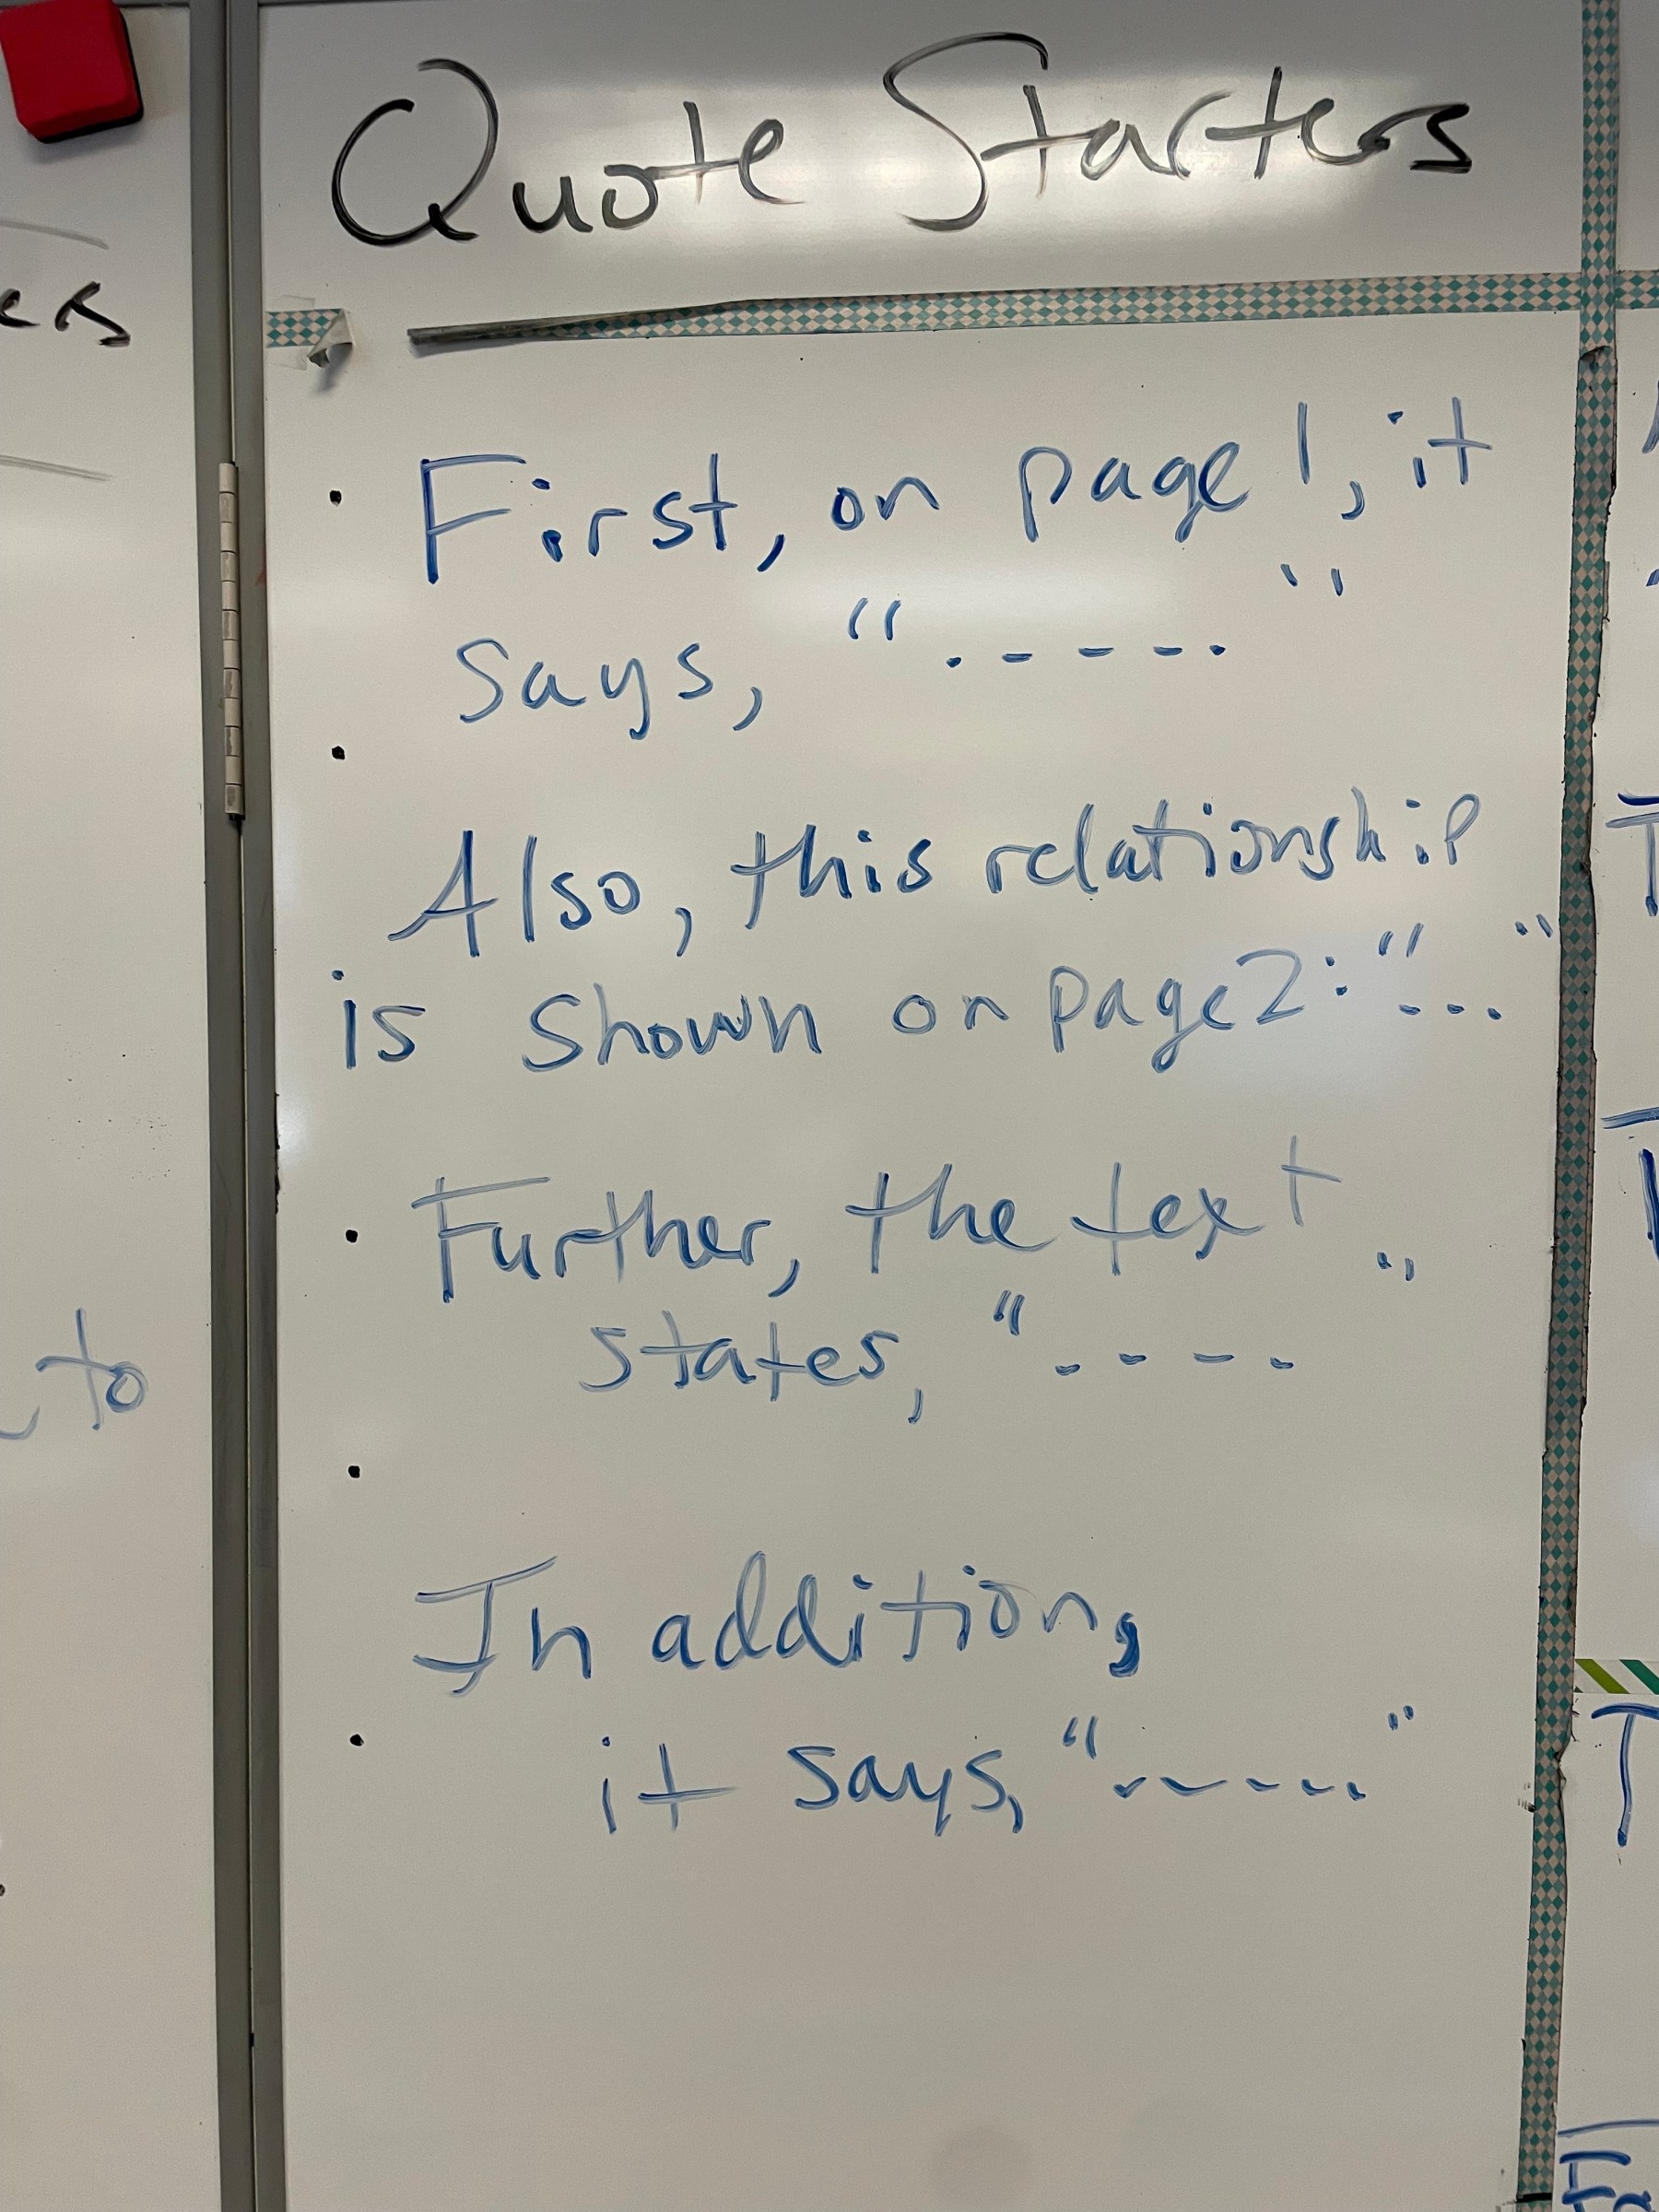 Quote Starters
• First, on page 1, it
says, "-----"
•
Also, this relationship
is shown on page 2: "..."
• Further, the text
states, "----"
•
In addition,
•
it says, "-----"
es
to